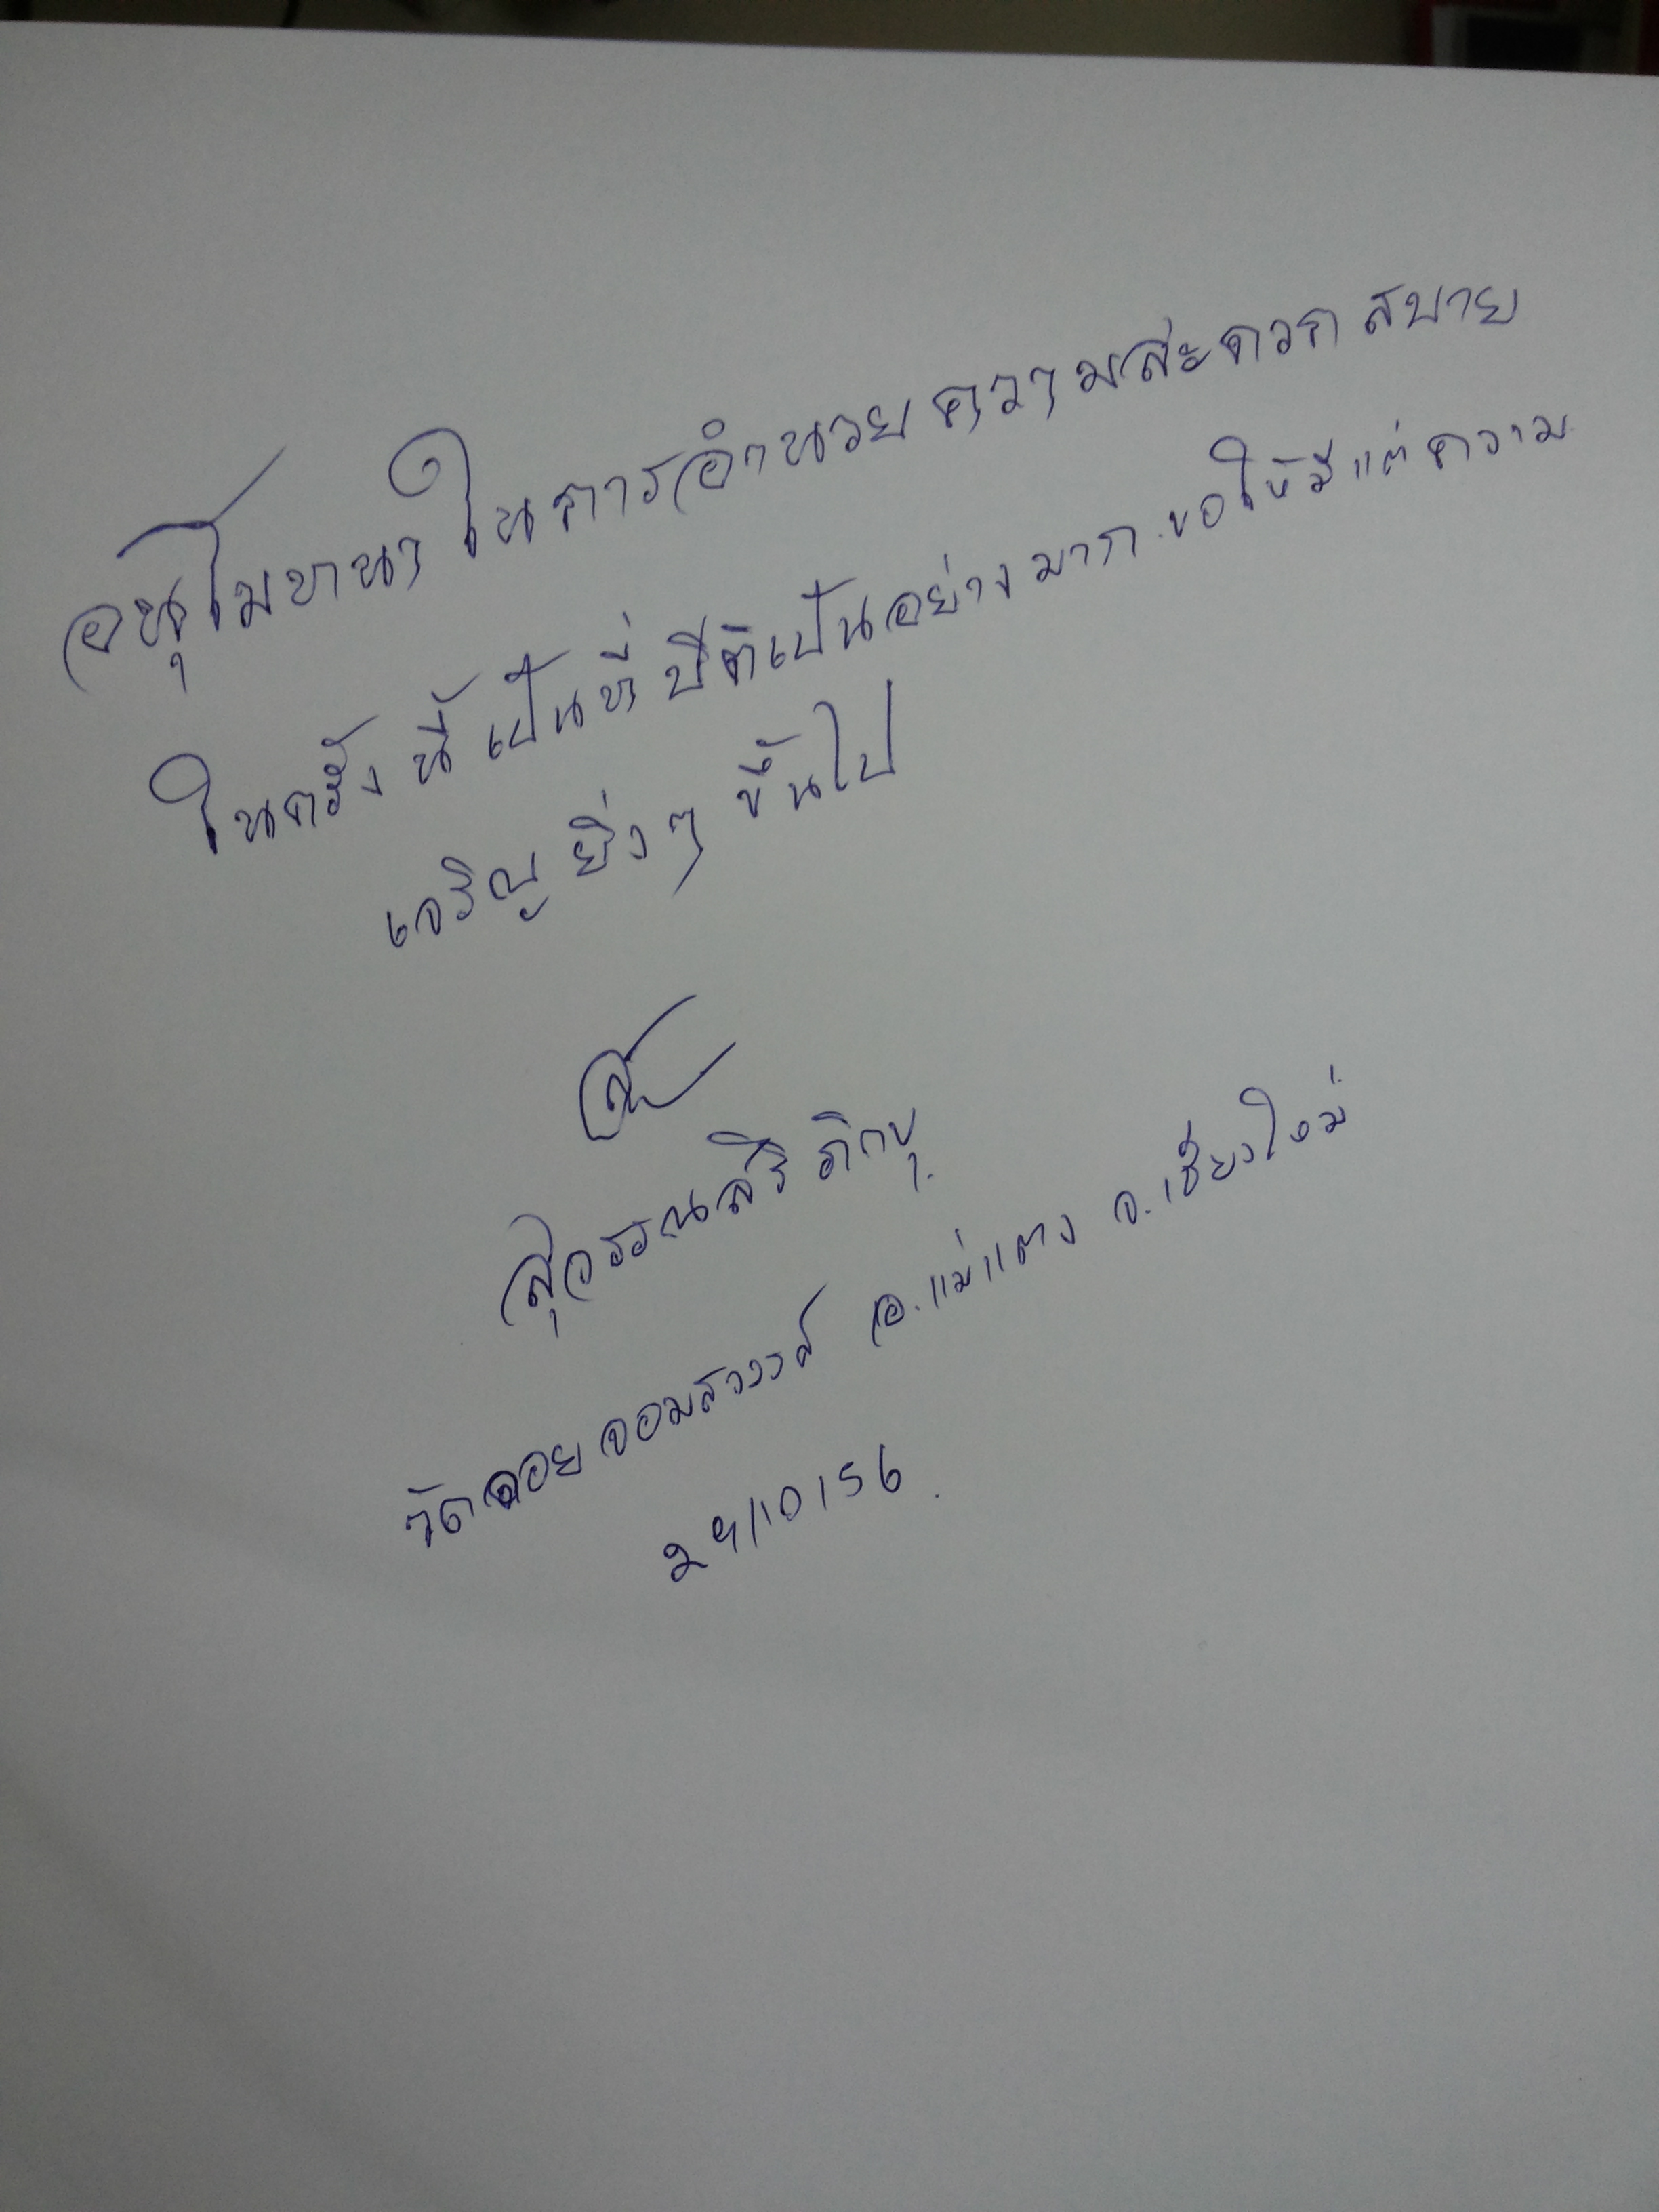 อนุโมทนา ในการอำนวยความสะดวก สบาย
ในครั้งนี้ เป็นที่ ปีติเป็นอย่างมาก ขอให้มีแต่ความ
เจริญ ยิ่งๆ ขึ้นไป
สุวรรณสิริ ภิกขุ
วัดดอย จอมสวรรค์ อ.แม่แตง จ.เชียงใหม่
29/10/56